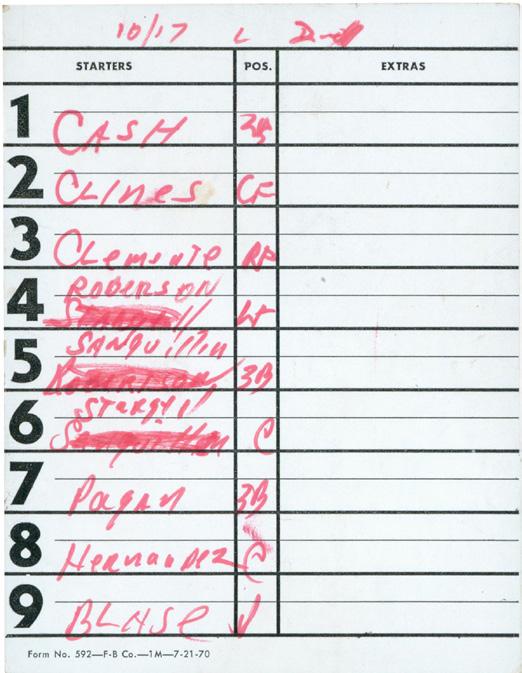 10/17 L
STARTERS POS. EXTRAS
1 CASH
2 Clines CF
3 Clemente RF
ROBERSON
4
SANguillin
5 3B
STARgell
6 C
7 Pagan 3B
8 Hernandez
9 BLASe
Form No. 592—F-B Co.—1M—7-21-70